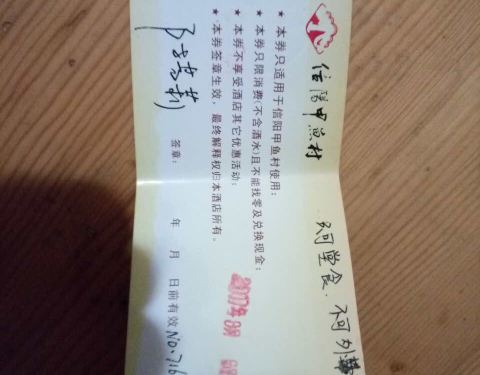 信阳甲鱼村
只可堂食．不可外
★ 本券只适用于信阳甲鱼村使用；
★ 本券只限消费(不含酒水)且不能找零及兑换现金；
★ 本券不享受酒店其它优惠活动；
★ 本券签章生效，最终解释权归本酒店所有。
签章： 年 月 日前有效 NO.716